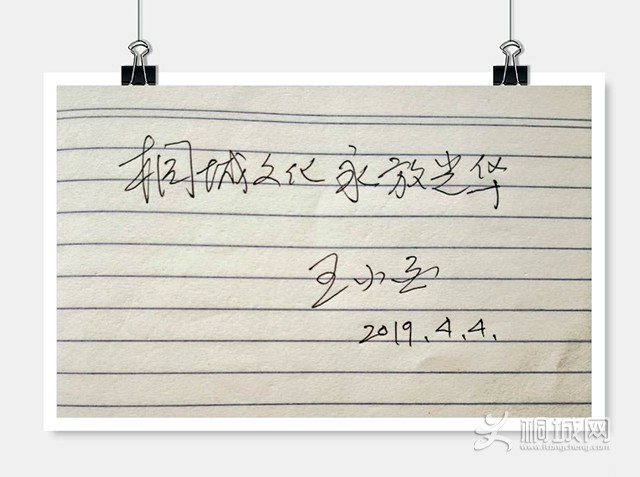 桐城文化永放光华
王小亚
2019.4.4.
桐城网
www.itongcheng.com